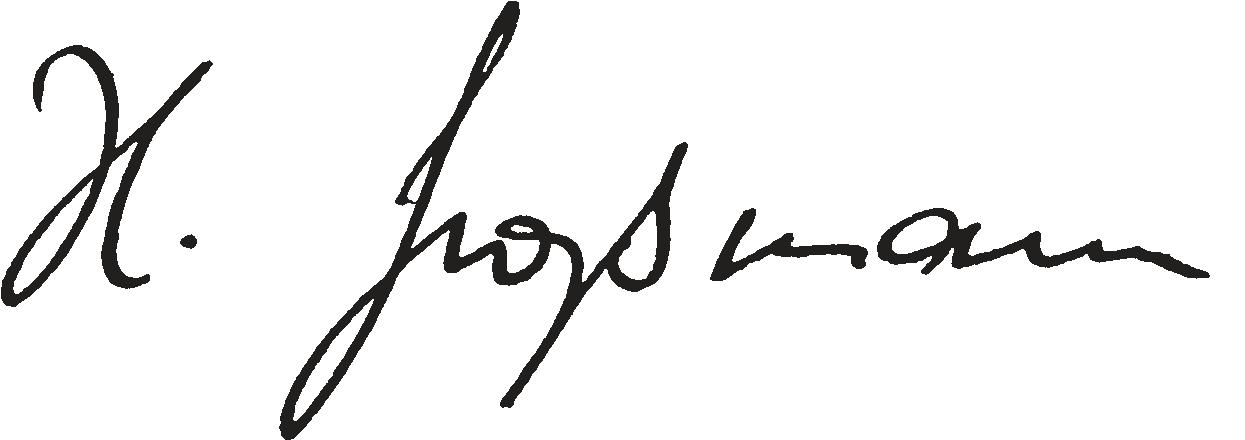 H. Großmann